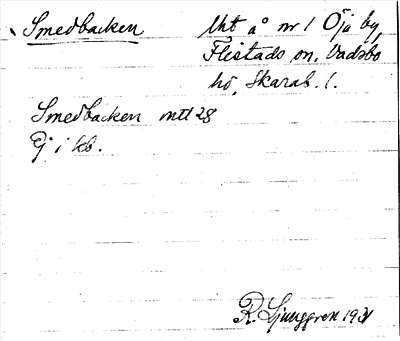 Smedbacken
Uht å nr 1 Öja by,
Flistads sn, Vadsbo
hd, Skarab. l.
Smedbacken mtl 28
Ej i kb.
R. Ljunggren 1931